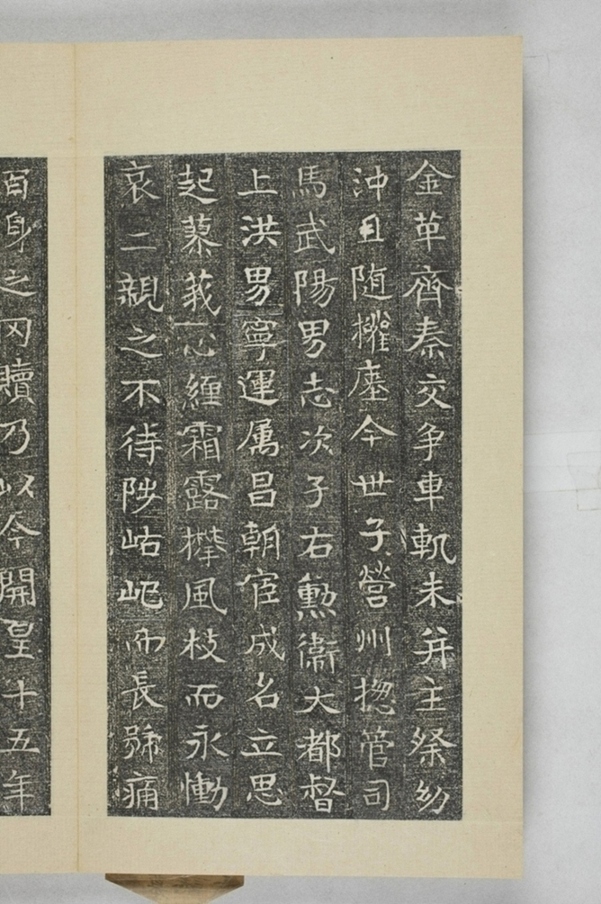 金革齊秦交争車軌未并主祭幼
沖且随櫂塵今世子營州揔管司
馬武陽男志次子右勲衞大都督
上洪男寧運属昌朝宦成名立思
起蓼莪心纏霜露攀風枝而永慟
哀二親之不待陟岵屺而長號痛
百身之冈贖乃以今開皇十五年